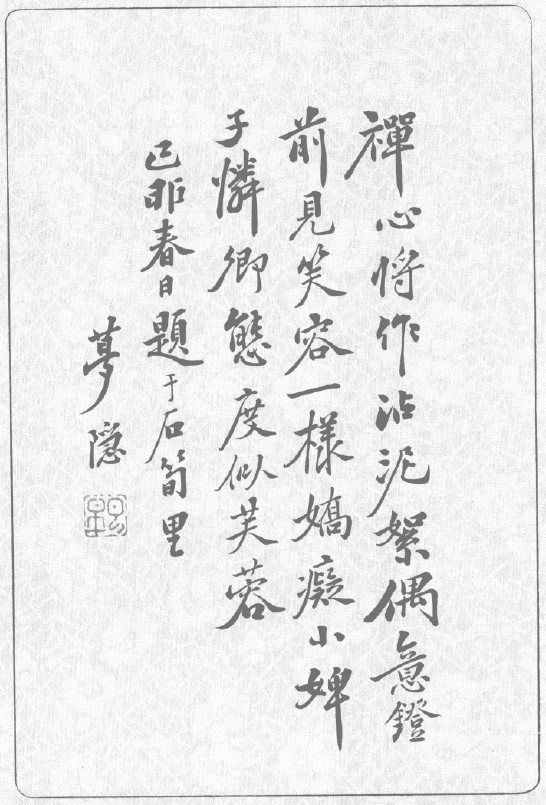 禪心將作沾泥絮偶意鐙
前見笑容一樣嬌癡小婢
子憐卿態度似芙蓉
己卯春日題于石筍里
夢隱